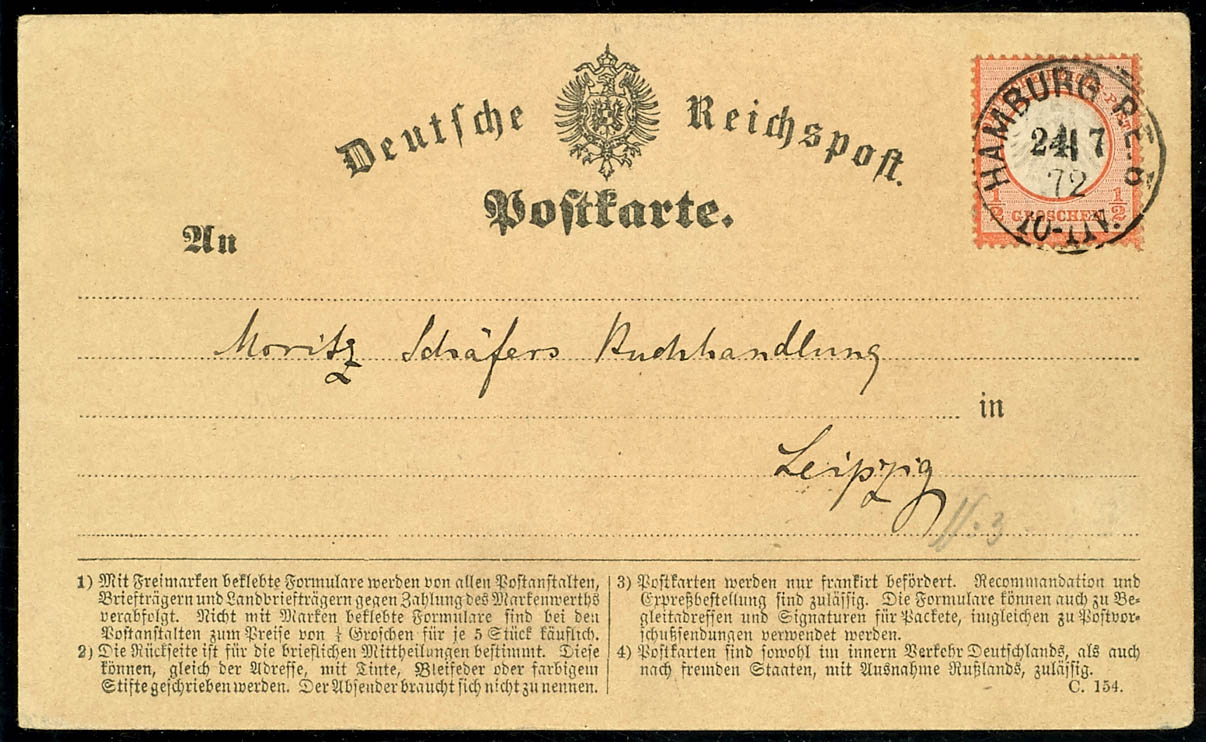 Deutsche Reichspost.
Postkarte.
HAMBURG P.E.
24 7
72
10-11V.
½ GROSCHEN ½
An
Moritz Schäfers Buchhandlung
in
Leipzig
1) Mit Freimarken beklebte Formulare werden von allen Postanstalten,
Briefträgern und Landbriefträgern gegen Zahlung des Markenwerths
verabfolgt. Nicht mit Marken beklebte Formulare sind bei den
Postanstalten zum Preise von ¼ Groschen für je 5 Stück käuflich.
2) Die Rückseite ist für die brieflichen Mittheilungen bestimmt. Diese
können, gleich der Adresse, mit Tinte, Bleifeder oder farbigem
Stifte geschrieben werden. Der Absender braucht sich nicht zu nennen.
3) Postkarten werden nur frankirt befördert. Recommandation und
Expreßbestellung sind zulässig. Die Formulare können auch zu Be-
gleitadressen und Signaturen für Packete, imgleichen zu Postvor-
schußsendungen verwendet werden.
4) Postkarten sind sowohl im innern Verkehr Deutschlands, als auch
nach fremden Staaten, mit Ausnahme Rußlands, zulässig.
C. 154.